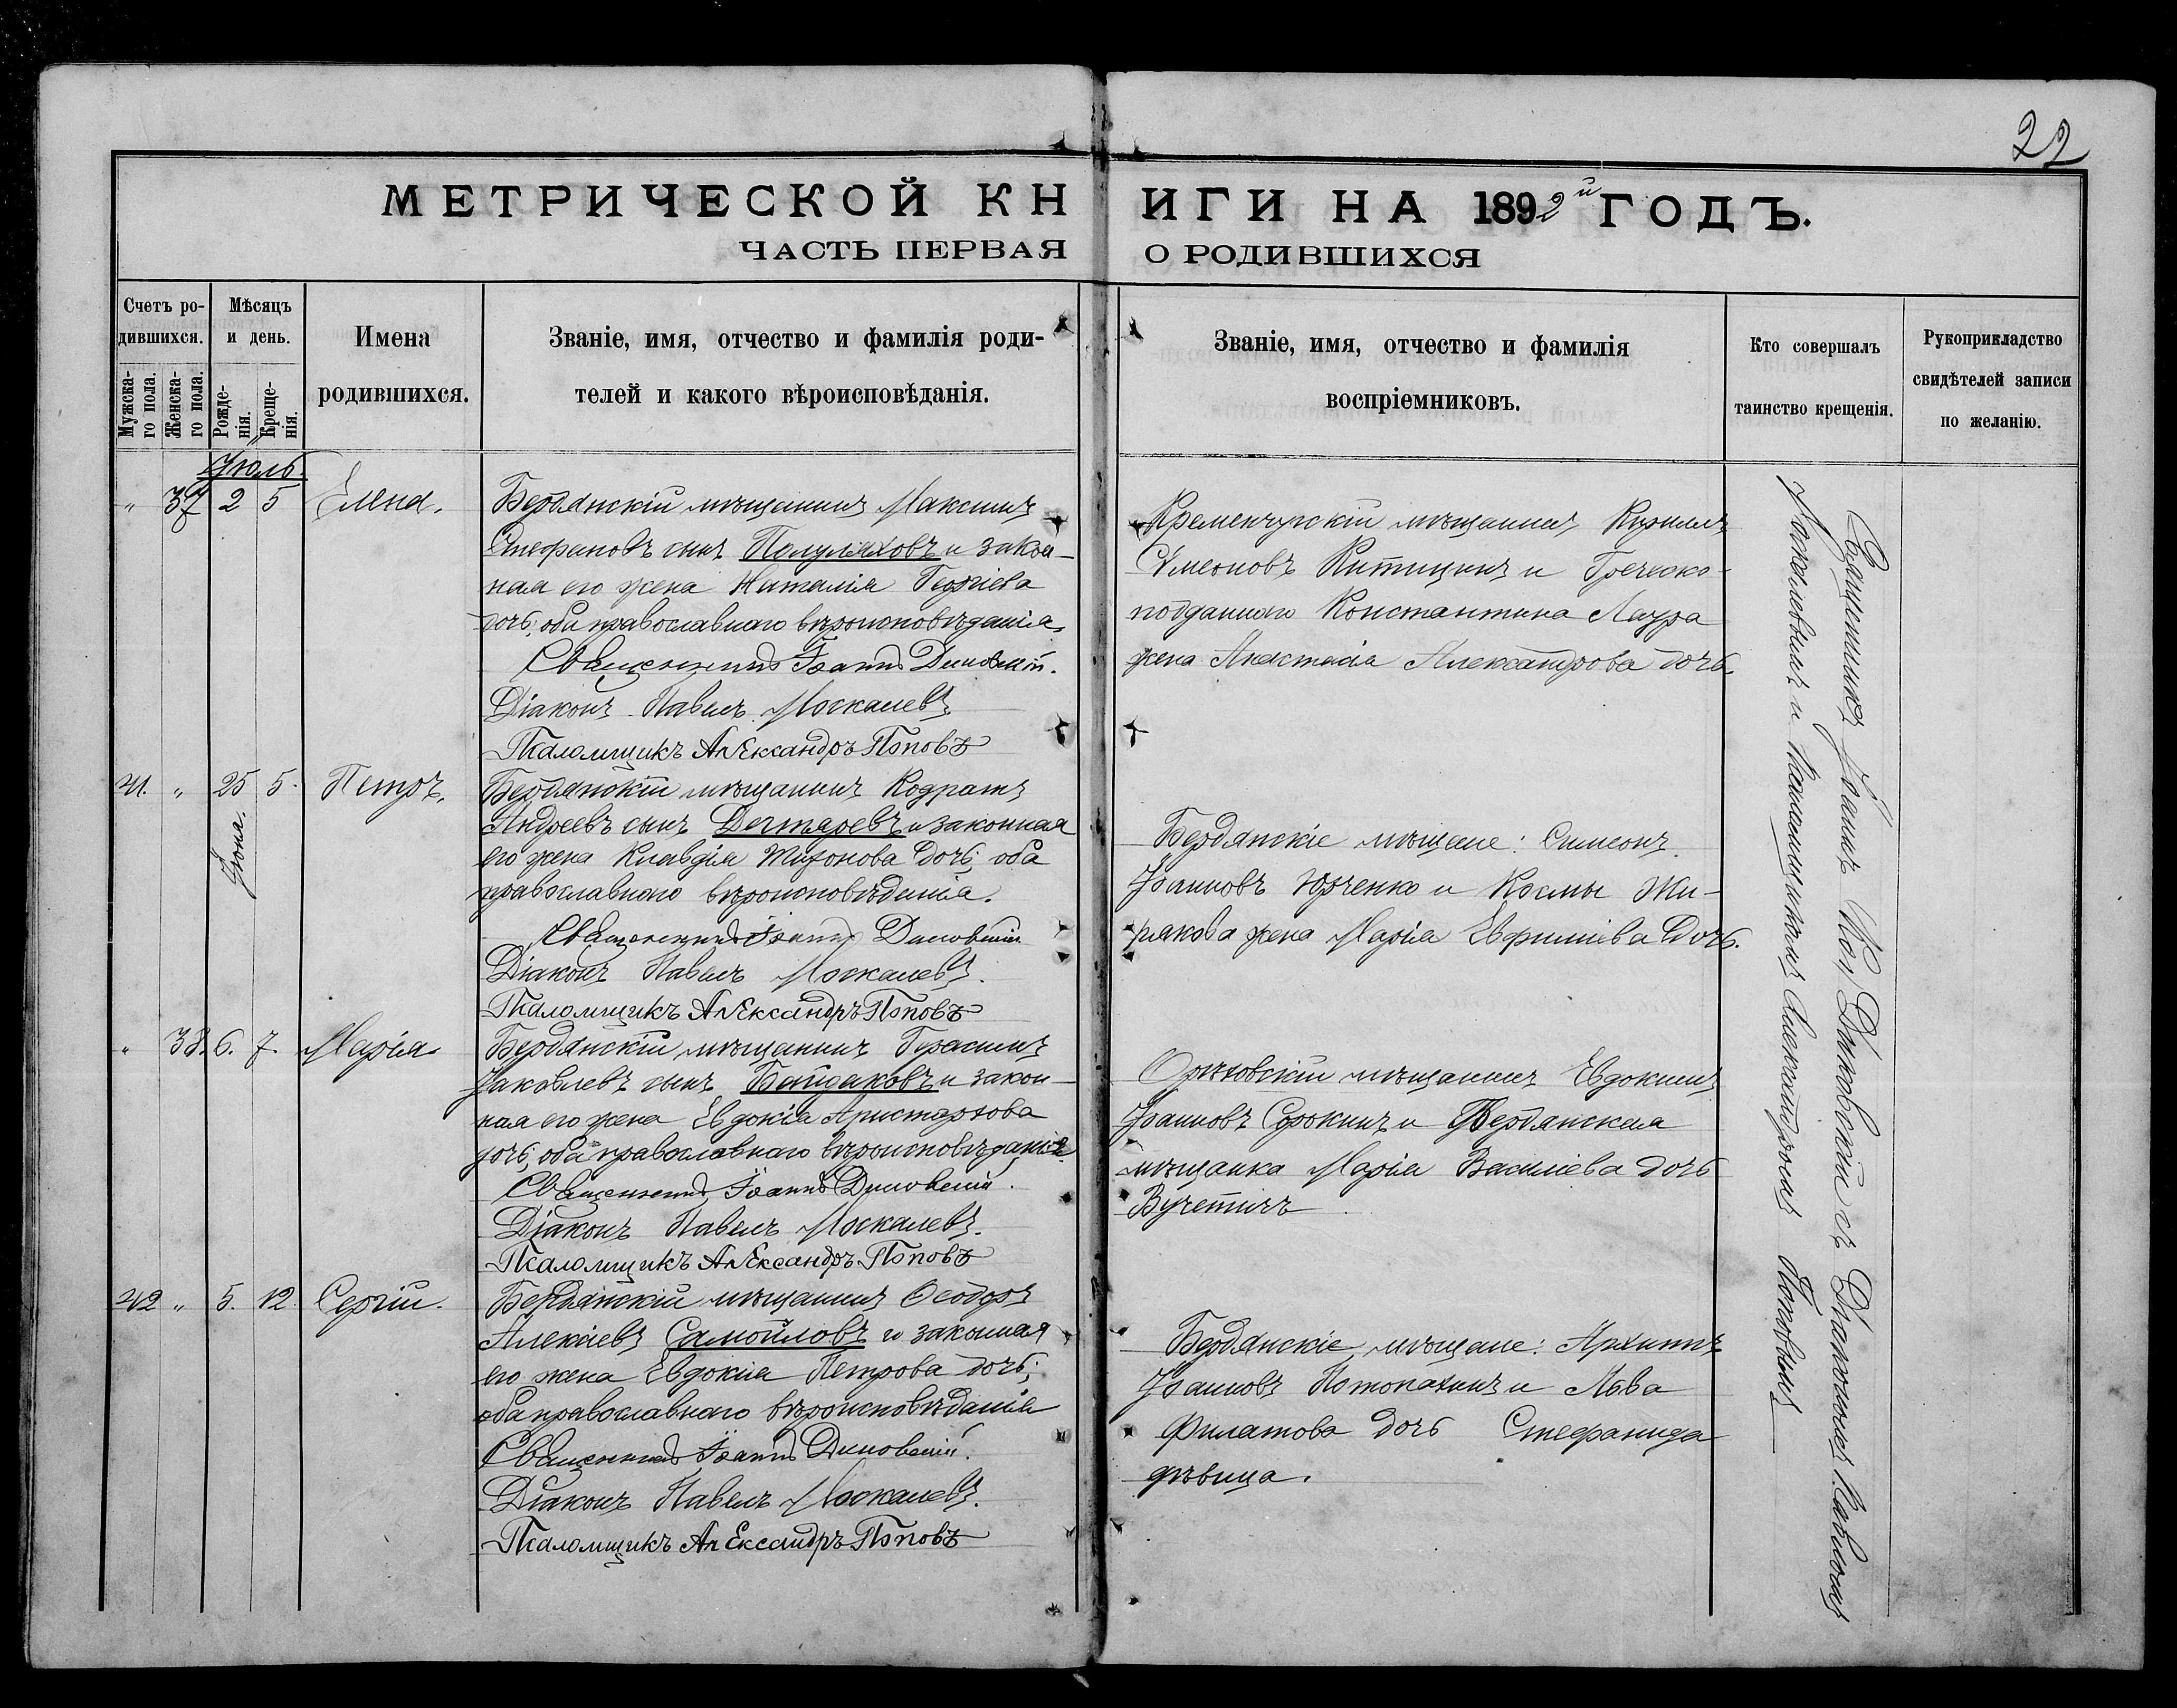 22
МЕТРИЧЕСКОЙ КНИГИ НА 1892й ГОДЪ.
ЧАСТЬ ПЕРВАЯ О РОДИВШИХСЯ
Счетъ ро-
дившихся.
Мужска-
го пола.
Женска-
го пола.
Мѣсяцъ
и день.
Рожде-
нія.
Креще-
нія.
Имена
родившихся.
Званіе, имя, отчество и фамилія роди-
телей и какого вѣроисповѣданія.
Званіе, имя, отчество и фамилія
воспріемниковъ.
Кто совершалъ
таинство крещенія.
Рукоприкладство
свидѣтелей записи
по желанію.
Іюль.
" 37 2 5 Елена.
Бердянскій мѣщанинъ Максимъ
Стефановъ сынъ Полуляховъ и закон-
ная его жена Наталія Георгіева
дочь, оба православнаго вѣроисповѣданія.
Священникъ Іоаннъ Диновскій.
Діаконъ Павелъ Москалевъ
Псаломщикъ Александръ Поповъ
Кременчугскій мѣщанинъ Кириллъ
Симеоновъ Китицынъ и Греческо-
подданнаго Константина Лазра
жена Анастасія Александрова дочь.
41. " 25 5. Петръ.
Іюня.
Бердянскій мѣщанинъ Кодратъ
Андреевъ сынъ Дегтяревъ и законная
его жена Клавдія Тихонова дочь, оба
православнаго вѣроисповѣданія.
Священникъ Іоаннъ Диновскій
Діаконъ Павелъ Москалевъ.
Псаломщикъ Александръ Поповъ
Бердянскіе мѣщане: Симеонъ
Іоанновъ Юрченко и Космы Жи-
рякова жена Марія Евфиміева дочь.
" 38. 6. 7. Марія
Бердянскій мѣщанинъ Герасимъ
Іаковлевъ сынъ Байдаковъ и закон-
ная его жена Евдокія Аристархова
дочь, оба православнаго вѣроисповѣданія.
Священникъ Іоаннъ Диновскій.
Діаконъ Павелъ Москалевъ.
Псаломщикъ Александръ Поповъ
Орѣховскій мѣщанинъ Евдокимъ
Іоанновъ Сорокинъ и Бердянская
мѣщанка Марія Василіева дочь
Вучетичъ
42 " 5. 12. Сергій.
Бердянскій мѣщанинъ Ѳеодоръ
Алексіевъ Самойловъ и законная
его жена Евдокія Петрова дочь;
оба православнаго вѣроисповѣданія
Священникъ Іоаннъ Диновскій.
Діаконъ Павелъ Москалевъ.
Псаломщикъ Александръ Поповъ
Бердянскіе мѣщане: Архиппъ
Іоанновъ Потопахинъ и Льва
Филатова дочь Стефанида
дѣвица.
Священникъ Іоаннъ Диновскій съ Діакономъ Павломъ
Москалевымъ и Псаломщикомъ Александромъ Поповымъ